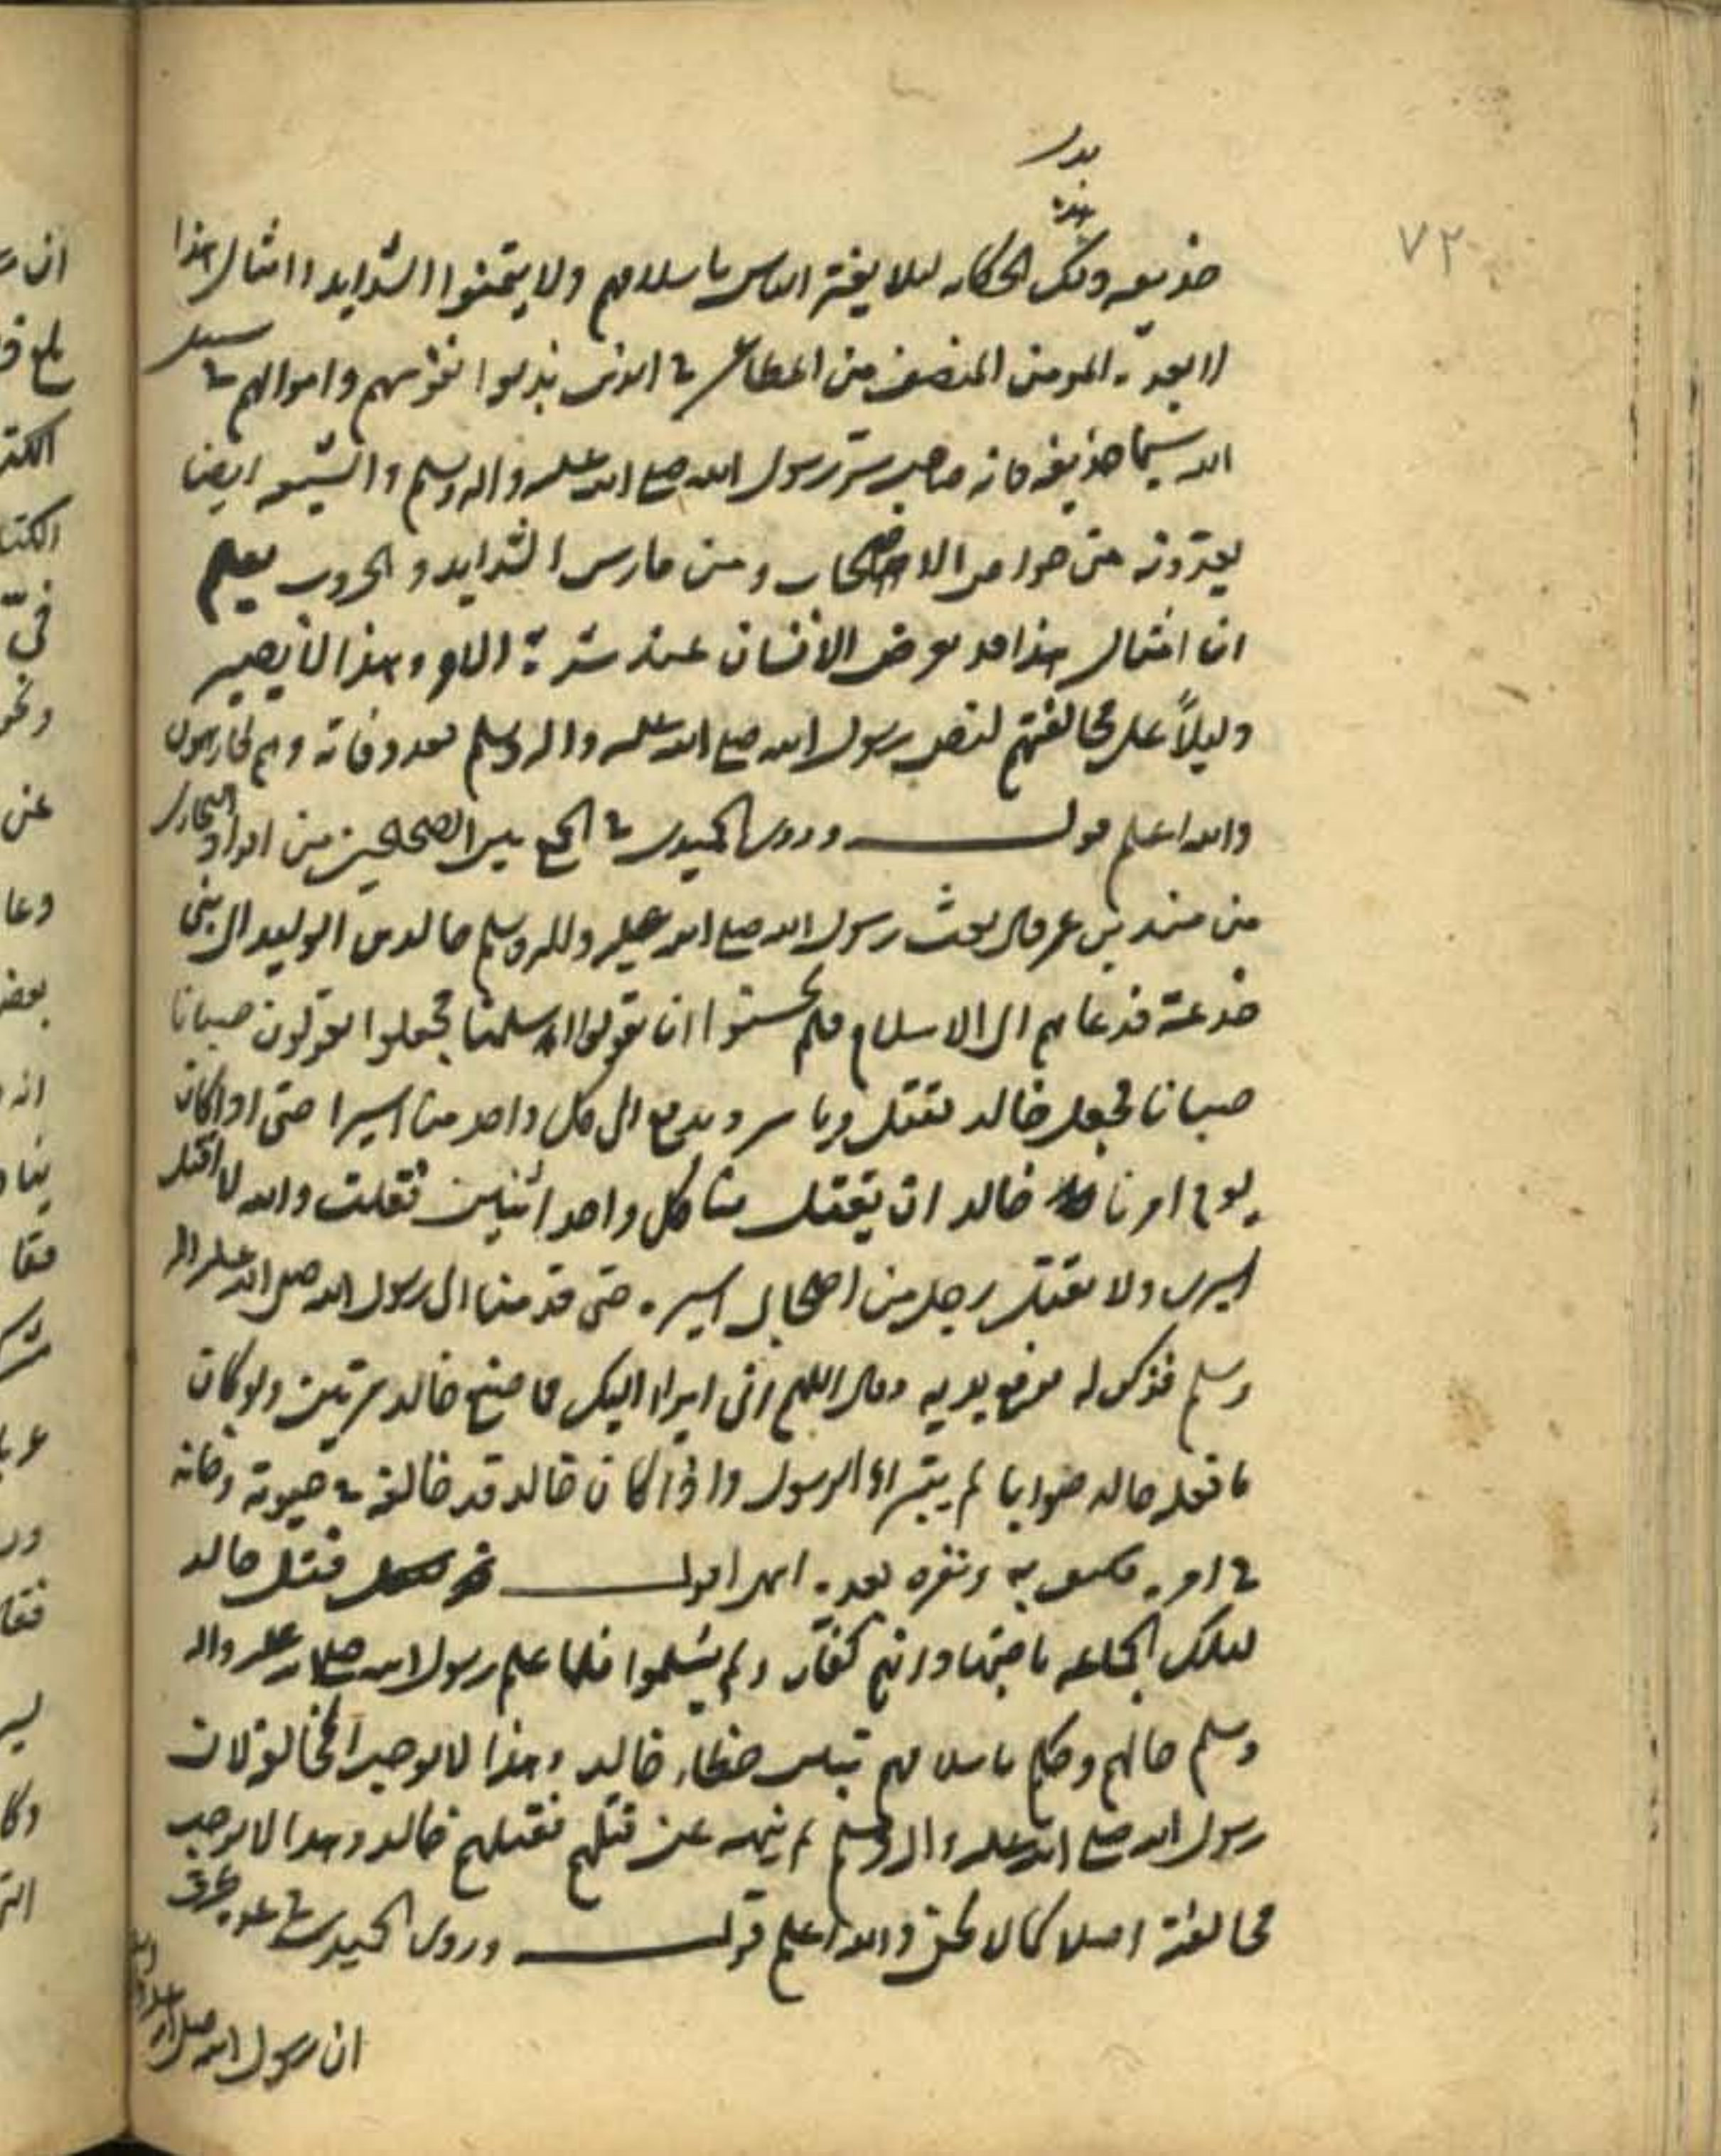 بدر
٧٢
حذيفه تلك الحكاية لئلا يغتر الناس باسلامهم ولا يتمنوا الشدايد وامثال هذا
المومن المنصف من المطاعن في الذين بذلوا نفوسهم واموالهم في سبيل
الله سيما حذيفه فانه صاحب سر رسول الله صلى الله عليه واله وسلم والشيعه ايضا
يعدونه من خواص الاصحاب ومن مارس الشدايد والحروب يعلم
ان امثال هذا قد يعرض الانسان عند شدة وهذا لا يصير
دليلاً على مخالفتهم لنص رسول الله صلى الله عليه واله وسلم بعد وفاته
والله اعلم قوله وروى الحميدى في الجمع بين الصحيحين من افراد البخارى
من مسند بن عمر قال بعث رسول الله صلى الله عليه واله وسلم خالد بن الوليد الى بنى
خذعة فدعاهم الى الاسلام فلم يحسنوا ان يقولوا اسلمنا فجعلوا يقولون صبانا
صبانا فجعل خالد يقتل وياسر ودفع الى كل واحد منا اسيرا حتى اذا كان
يوم امرنا خالد ان يقتل منا كل واحد فقلت والله لا اقتل
اسيرى ولا يقتل رجل من اصحابى اسيره حتى قدمنا الى رسول الله صلى الله عليه واله
وسلم فذكر له فرفع يديه وقال اللهم انى ابرا اليك مما صنع خالد مرتين ولو كان
ما فعل خالد صوابا لم يتبراء الرسول واذا كان خالد قد خالفه في حيوته وخانه
في امره فكيف به وبغيره بعده انتهى اقول قتل خالد
لتلك الجماعه باجتهاد انهم كفار ولم يسلموا فلما علم رسول الله صلى الله عليه واله
وسلم حالهم وحكم باسلامهم تبين خطاء خالد وهذا لا يوجب المخالفة لان
رسول الله صلى الله عليه واله وسلم لم ينهه عن قتلهم فقتلهم خالد وهذا لا يوجب
مخالفته اصلا كما لا يخفى والله اعلم قوله وروى الحميدى في
ان رسول الله صلى الله عليه واله